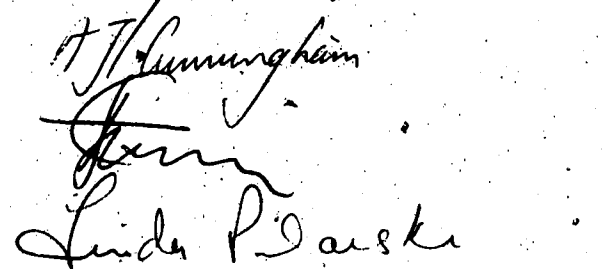 A J Cunningham
Linda Pilarski